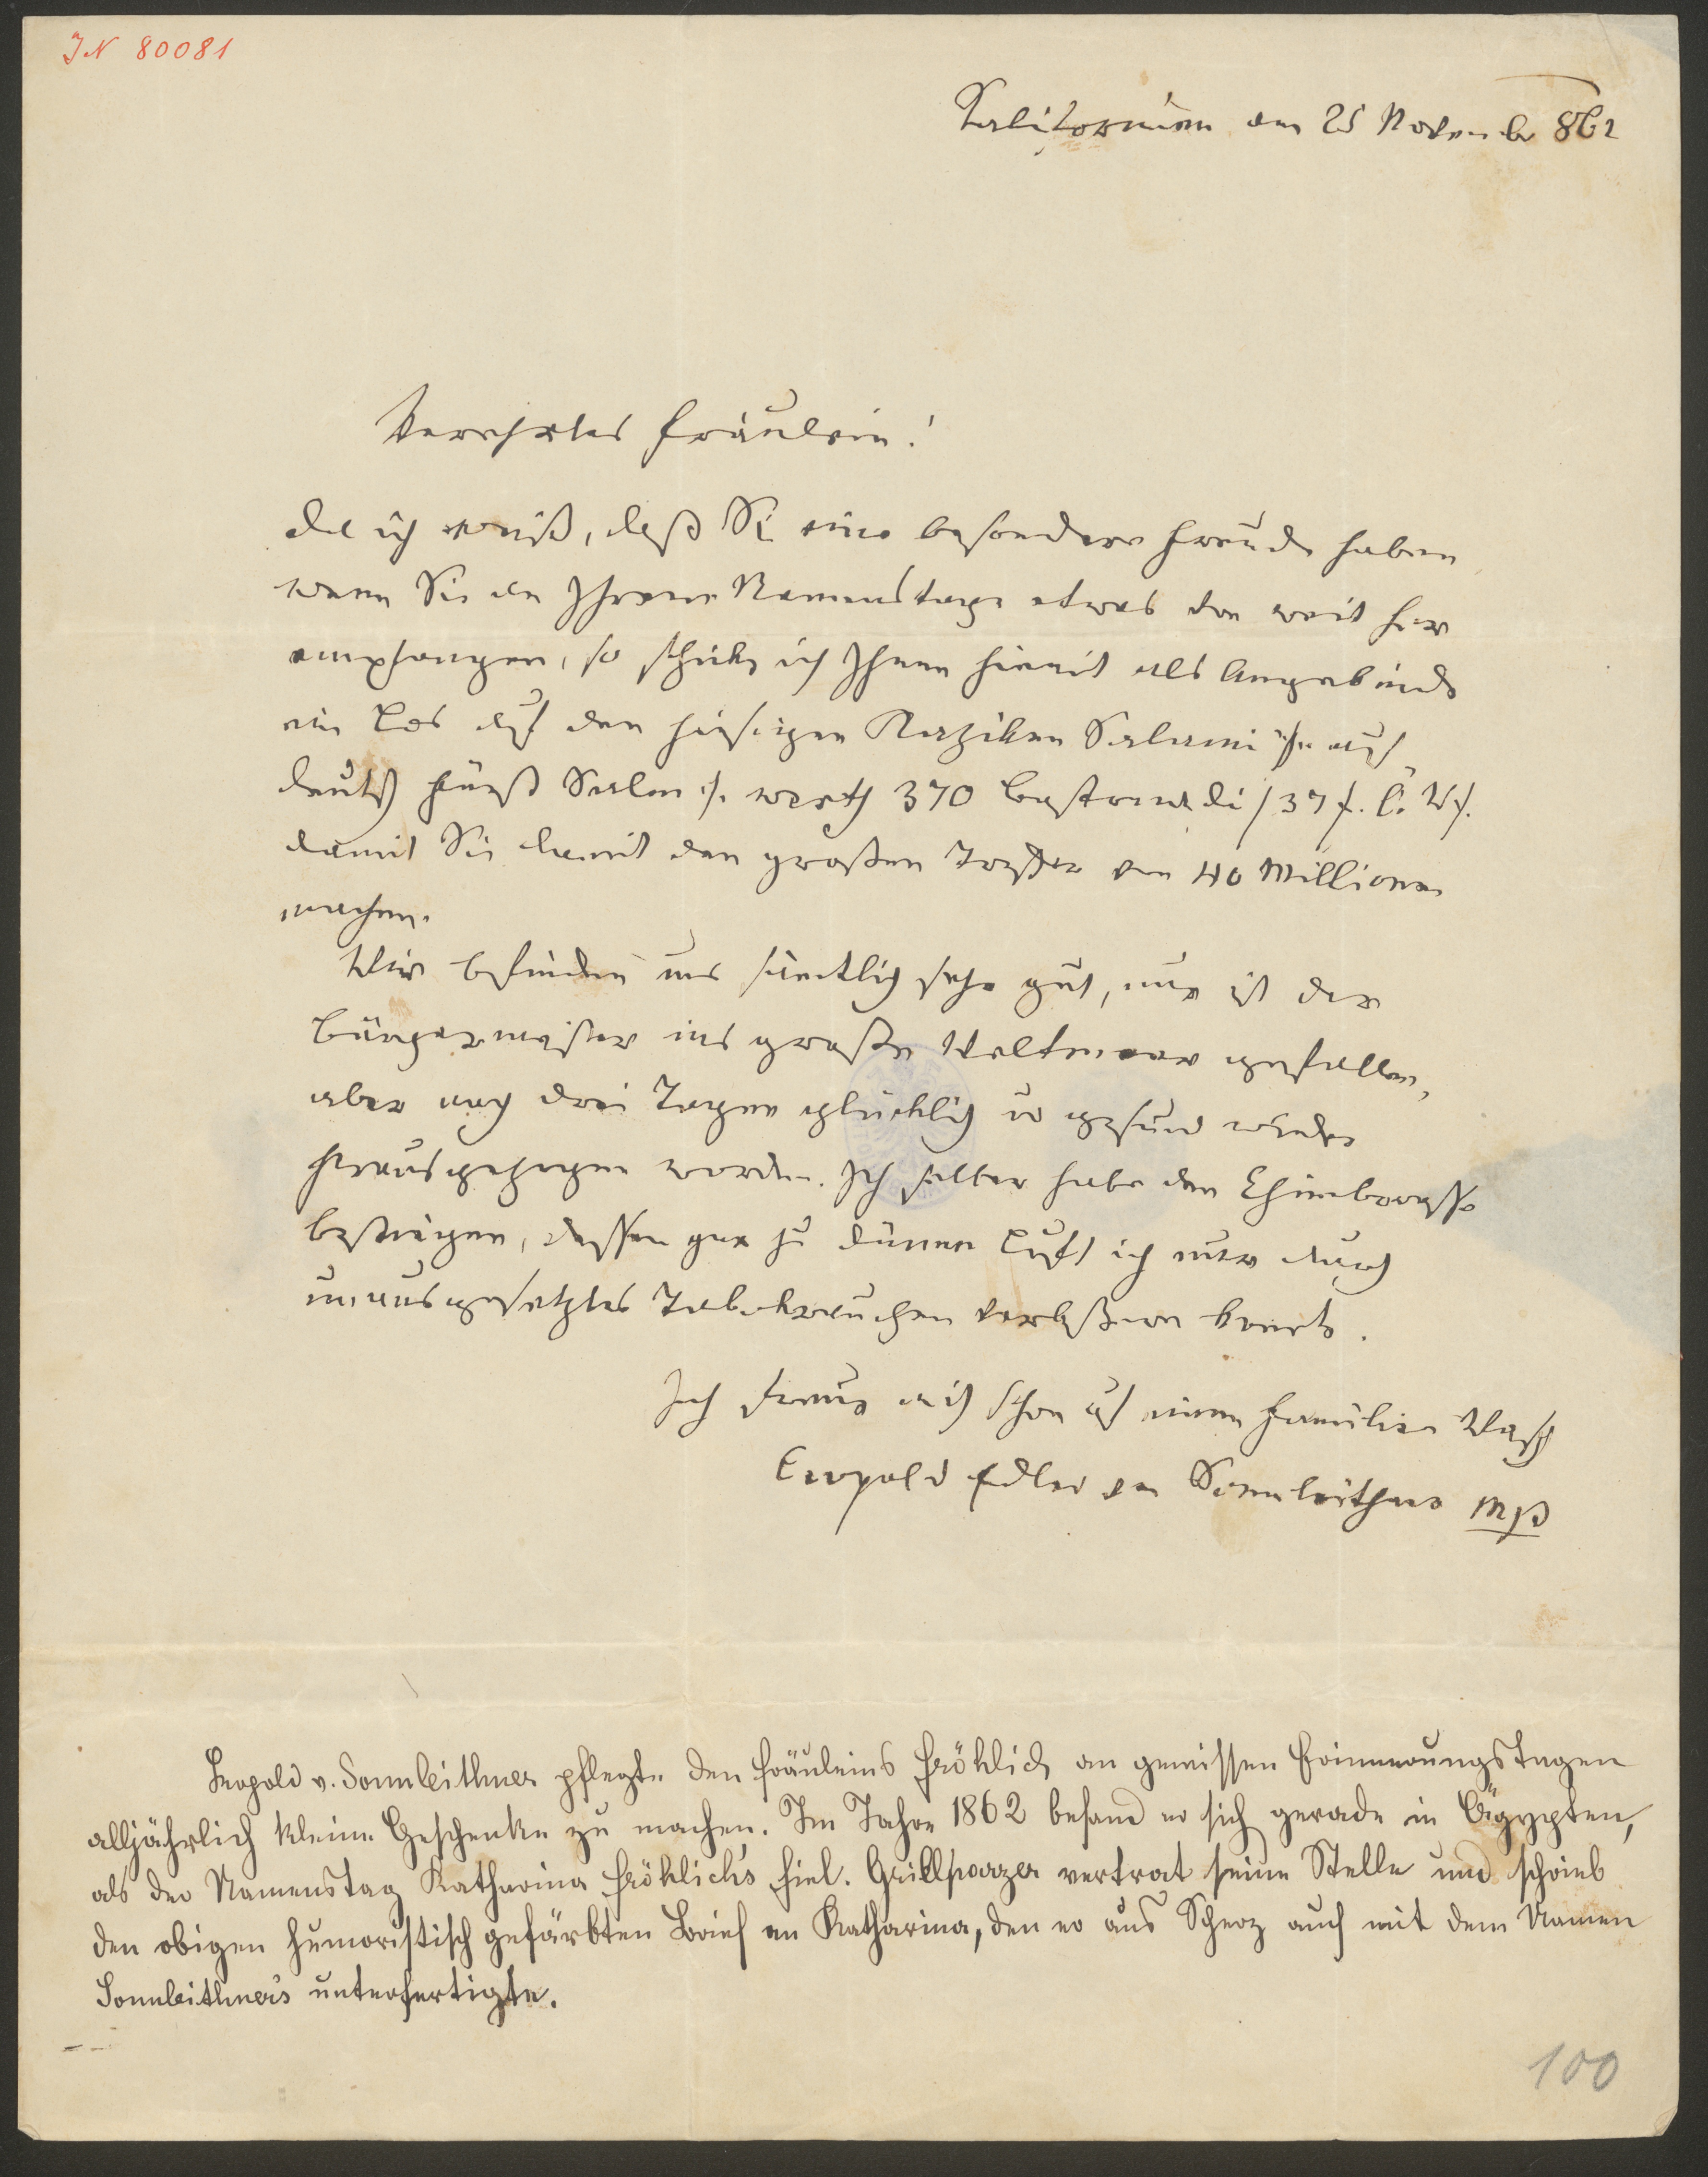 IN 80081
Kalifornien am 25 November 862
Verehrtes Fräulein!
Da ich weiß, daß Sie eine besondere Freude haben
wenn Sie an Ihrem Namenstage etwas von weit her
empfangen, so schicke ich Ihnen hiemit als Angebinde
ein Los auf den hiesigen Kaziken Salami /: auf
deutsch Fürst Salm :/ werth 370 /37 f. Ö. W/.
damit Sie damit den großen Treffer von 40 Millionen
machen.
Wir befinden uns sämtlich sehr gut, nur ist der
Bürgermeister ins große Weltmeer gefallen,
aber nach drei Tagen glücklich u gesund wieder
herausgezogen worden. Ich selber habe den Chimborasso
bestiegen, dessen gar zu dünne Luft ich nur durch
unausgesetztes Tabakrauchen verbeßern konnte.
Ich freue mich schon auf einen Familien
Leopold Edler von Sonnleithner mp
Leopold v. Sonnleithner pflegte den Fräuleins Fröhlich an gewissen Erinnerungstagen
alljährlich kleine Geschenke zu machen. Im Jahre 1862 befand er sich gerade in Ägypten,
als der Namenstag Katharina Fröhlich's fiel. Grillparzer vertrat seine Stelle und schrieb
den obigen humoristisch gefärbten Brief an Katharina, den er aus Scherz auch mit dem Namen
Sonnleithner's unterfertigte.
100